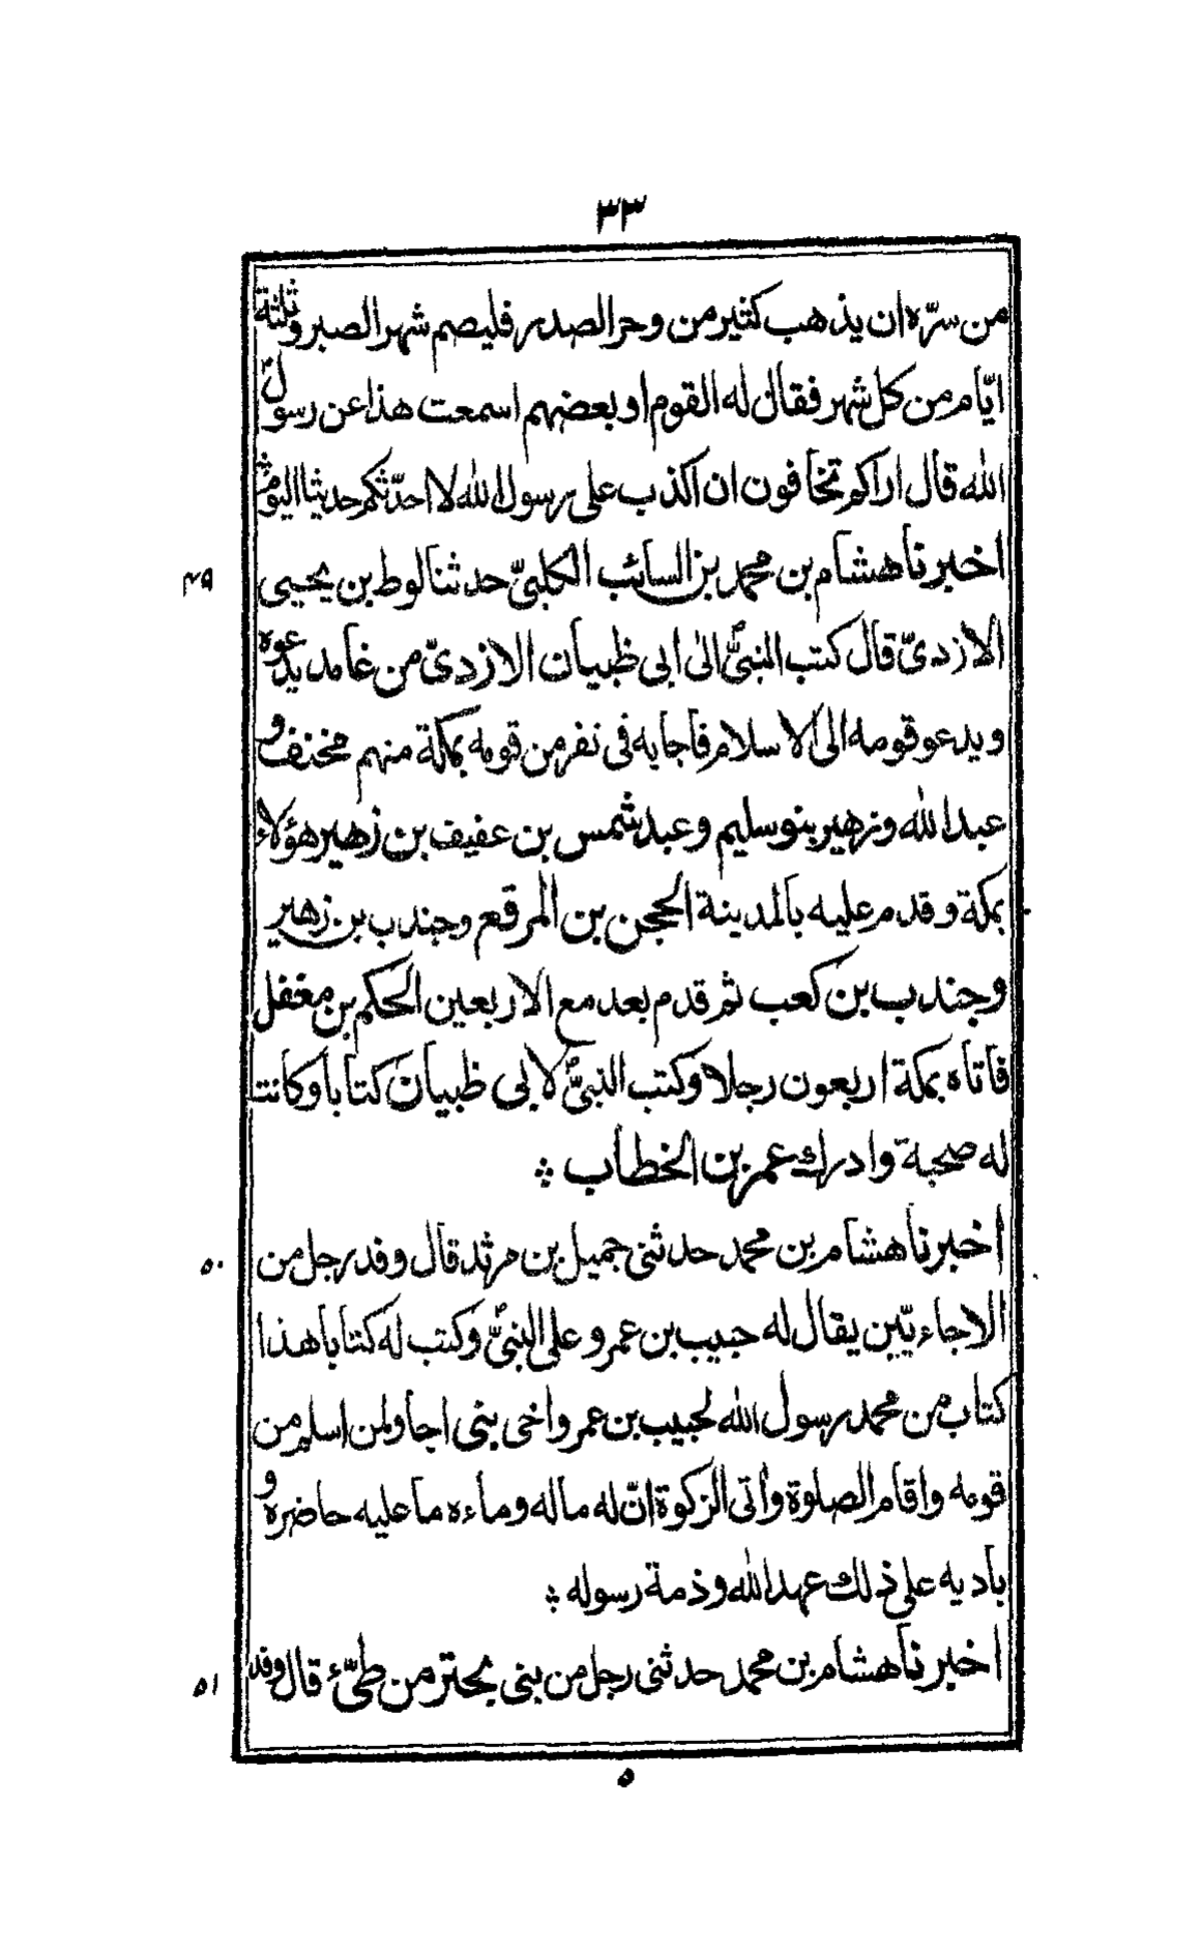 ٣٣
من سرّه ان يذهب كثير من وحر الصدر فليصم شهر الصبر وثلثة
ايّام من كل شهر فقال له القوم او بعضهم اسمعت هذا عن رسول
الله قال اراكم تخافون ان اكذب على رسول الله لا احدّثكم حديثا اليوم
اخبرنا هشام بن محمد بن السائب الكلبىّ حدثنا لوط بن يحيى
٤٩
الازدىّ قال كتب النبىّ الى ابى ظبيان الازدىّ من غامد يدعوه
ويدعو قومه الى الاسلام فاجابه فى نفر من قومه بمكة منهم مخنف و
عبد الله وزهير بنو سليم وعبد شمس بن عفيف بن زهير هؤلاء
بمكة وقدم عليه بالمدينة الحجن بن المرقع وجندب بن زهير
وجندب بن كعب ثم قدم بعد مع الاربعين الحكم بن مغفل
فاتاه بمكة اربعون رجلا وكتب النبىّ لابى ظبيان كتابا وكانت
له صحبة وادرك عمر بن الخطاب
اخبرنا هشام بن محمد حدثنى جميل بن مرثد قال وفد رجل من
٥٠
الاجاءيّين يقال له حبيب بن عمرو على النبىّ وكتب له كتابا هذا
كتاب من محمد رسول الله لحبيب بن عمرو اخى بنى اجأ ولمن اسلم من
قومه واقام الصلوة واتى الزكوة انّ له ماله وماءه ما عليه حاضره و
باديه على ذلك عهد الله وذمة رسوله
اخبرنا هشام بن محمد حدثنى رجل من بنى بحتر من طىّء قال وفد
٥١
٥